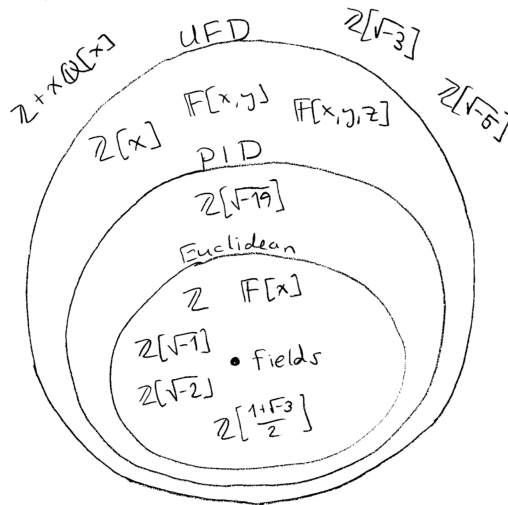 UFD
ℤ[√-3]
ℤ+xℚ[x]
ℤ[√-5]
𝔽[x,y]
𝔽[x,y,z]
ℤ[x]
PID
ℤ[√-19]
Euclidean
ℤ 𝔽[x]
ℤ[√-1]
• fields
ℤ[√-2]
ℤ[(1+√-3)/2]